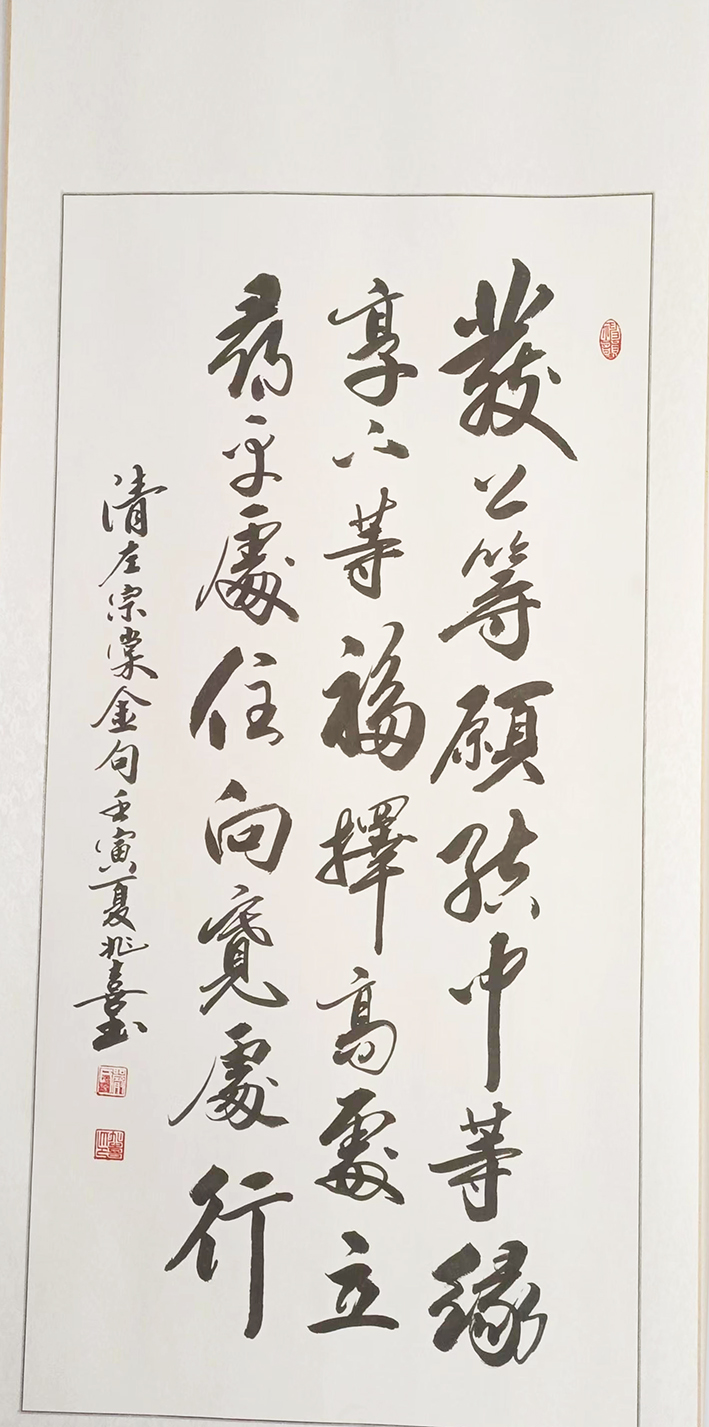 發上等願結中等緣
享下等福擇高處立
尋平處住向寬處行
清左宗棠金句壬寅夏